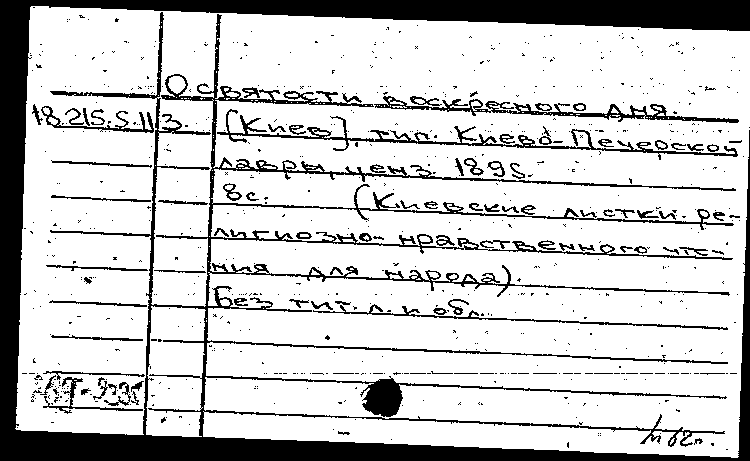 О святости воскресного дня.
18.215.5.113. [Киев], тип. Киево-Печерской
лавры, ценз. 1895.
8с. (Киевские листки ре-
лигиозно-нравственного чте-
ния для народа).
Без тит. л. и обл.